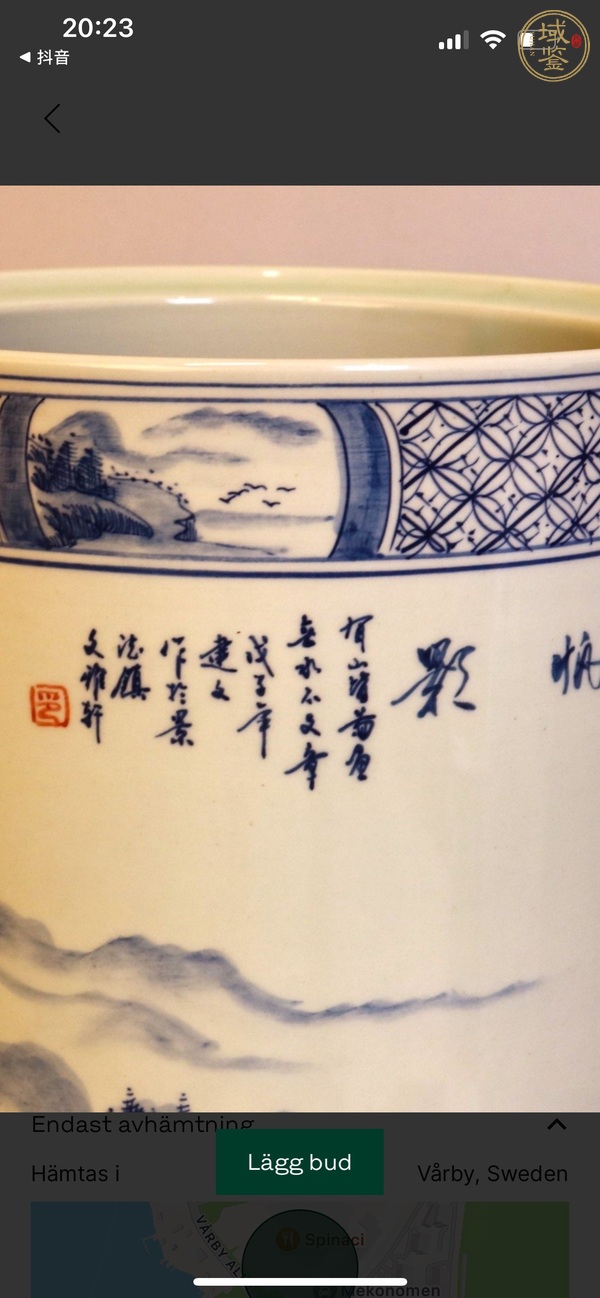 20:23
◀ 抖音
域鉴
帆
影
有山皆画
無水不文章
戊子年
建文
作於景
德镇
文雅轩
印
Endast avhämtning
Lägg bud
Hämtas i
Vårby, Sweden
VÅRBY AL
Spinaci
Mekonomen